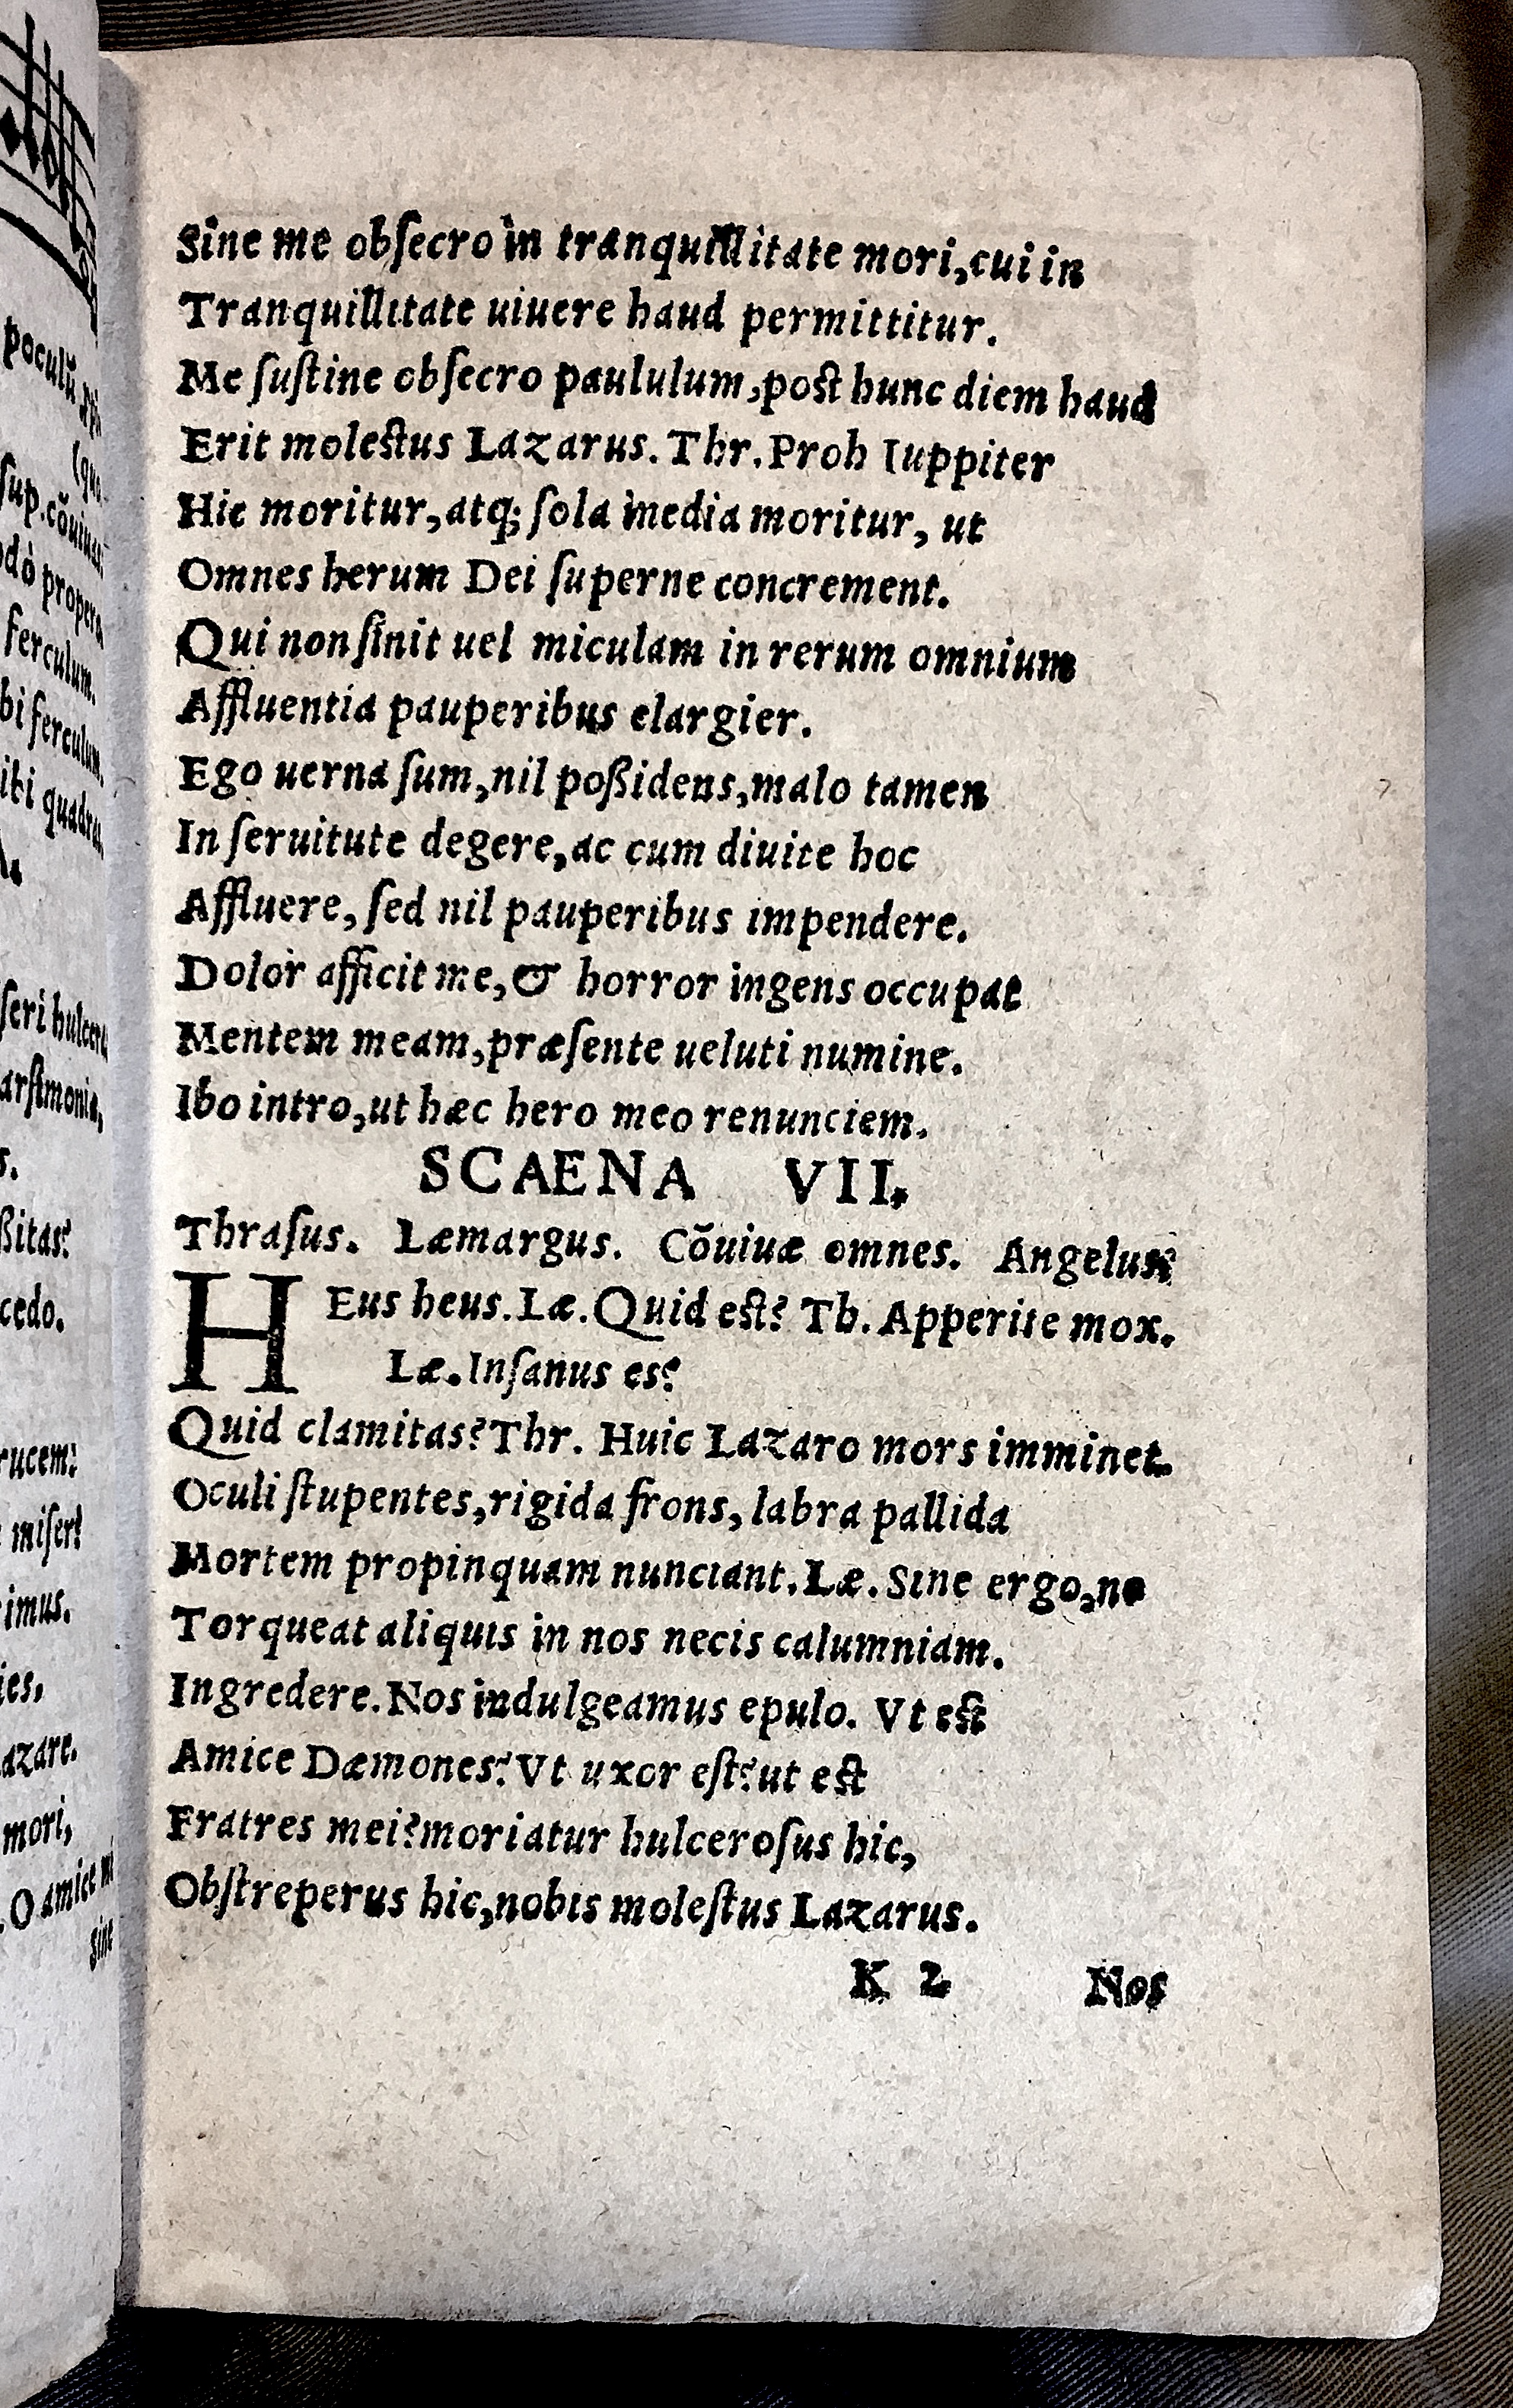 Sine me obſecro in tranquillitate mori, cui in
Tranquillitate uiuere haud permittitur.
Me ſuſtine obſecro paululum, poſt hunc diem haud
Erit moleſtus Lazarus. Thr. Proh Iuppiter
Hic moritur, atq; ſola inedia moritur, ut
Omnes herum Dei ſuperne concrement.
Qui non ſinit uel miculam in rerum omnium
Affluentia pauperibus elargier.
Ego uerna ſum, nil poßidens, malo tamen
In ſeruitute degere, ac cum diuite hoc
Affluere, ſed nil pauperibus impendere.
Dolor afficit me, & horror ingens occupat
Mentem meam, præſente ueluti numine.
Ibo intro, ut hæc hero meo renunciem.
SCAENA VII.
Thraſus. Læmargus. Cōuiuæ omnes. Angelus.
HEus heus. Læ. Quid eſt? Th. Apperite mox.
Læ. Inſanus es?
Quid clamitas? Thr. Huic Lazaro mors imminet.
Oculi ſtupentes, rigida frons, labra pallida
Mortem propinquam nunciant. Læ. Sine ergo, ne
Torqueat aliquis in nos necis calumniam.
Ingredere. Nos indulgeamus epulo. Vt eſt
Amice Dæmones? Vt uxor eſt? ut eſt
Fratres mei? moriatur hulceroſus hic,
Obſtreperus hic, nobis moleſtus Lazarus.
K 2 Nos
poculū
ſup. cōuiuas
propera
ferculum.
bi ferculum.
ibi
ſeri hulcera
cedo.
miſer?
Lazare.
mori,
O amice mi
ſine